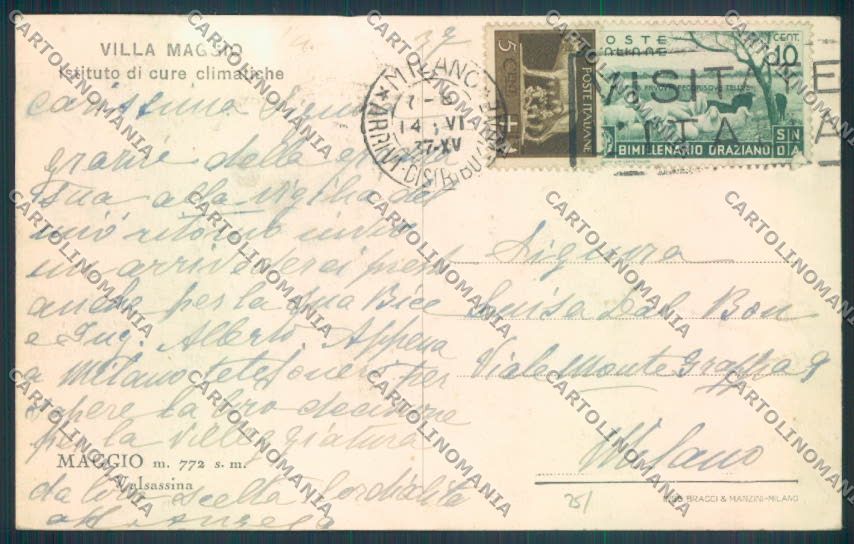 VILLA MAGGIO
Istituto di cure climatiche
carissima Signora
grazie della
sua alla vigilia del
mio ritorno invio
un arrivederci
anche per la sua Bice
e Ing. Alberto. Appena
a Milano telefonerò per
sapere la loro decisione
per la villeggiatura
MAGGIO m. 772 s. m.
Valsassina
da loro scelta Cordialità
MILANO
ARRIVI-DISTRIBUZ
14 VI
37-XV
5 CENT
POSTE ITALIANE
POSTE
ITALIANE
CENT. 10
BIMILLENARIO ORAZIANO
VISITATE
Signora
Luisa Dal Bon
Viale Monte Grappa 9
Milano
BRAGGI & MANZINI-MILANO
CARTOLINOMANIA